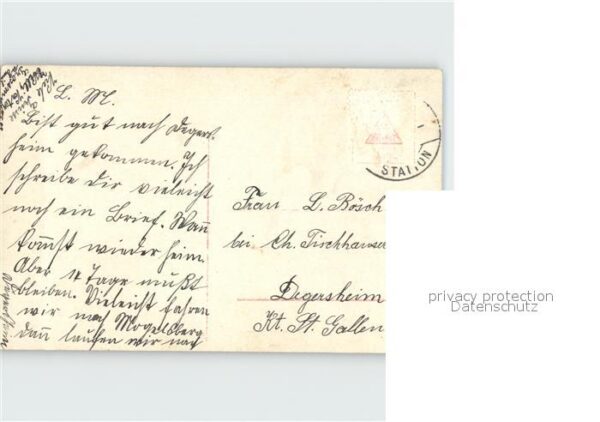 L. M.
Bist gut nach Degers-
heim gekommen. Ich
schreibe dir vieleicht
noch ein Brief. Wañ
kom̃st wieder heim.
Aber 14 Tage mußt
bleiben. Vieleicht fahren
wir nach Mogelsberg
dañ laufen wir nach
STATION
Frau L. Bösch
bei Ch. Tischhauser
Degersheim
Kt. St. Gallen
privacy protection
Datenschutz